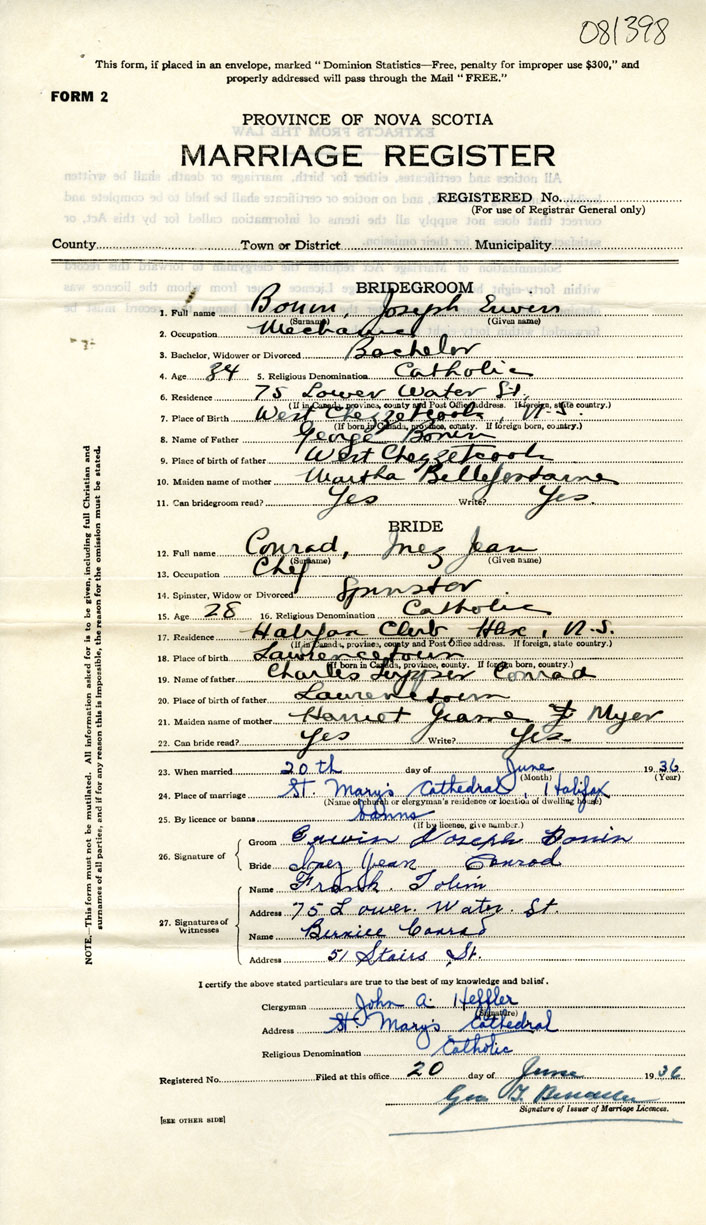 081398
This form, if placed in an envelope, marked "Dominion Statistics—Free, penalty for improper use $300," and
properly addressed will pass through the Mail "FREE."
FORM 2
PROVINCE OF NOVA SCOTIA
MARRIAGE REGISTER
REGISTERED No.
(For use of Registrar General only)
County Town or District Municipality
BRIDEGROOM
1. Full name Bonin, Joseph Erwin
(Surname) (Given name)
2. Occupation Mechanic
3. Bachelor, Widower or Divorced Bachelor
4. Age 34 5. Religious Denomination Catholic
6. Residence 75 Lower Water St,
(If in Canada, province, county and Post Office address. If foreign, state country.)
7. Place of Birth West Chezzetcook, N.S.
(If born in Canada, province, county. If foreign born, country.)
8. Name of Father George Bonin
9. Place of birth of father West Chezzetcook
10. Maiden name of mother Martha Bellefontaine
11. Can bridegroom read? Yes Write? Yes.
BRIDE
12. Full name Conrad, Inez Jean
(Surname) (Given name)
13. Occupation Chef
14. Spinster, Widow or Divorced Spinster
15. Age 28 16. Religious Denomination Catholic
17. Residence Halifax Club Hfx, N.S.
(If in Canada, province, county and Post Office address. If foreign, state country.)
18. Place of birth Lawrencetown
(If born in Canada, province, county. If foreign born, country.)
19. Name of father Charles Conrad
20. Place of birth of father Lawrencetown
21. Maiden name of mother Harriet Myer
22. Can bride read? Yes Write? Yes.
23. When married 20th day of June 1936
(Month) (Year)
24. Place of marriage St. Mary's Cathedral, Halifax
(Name of church or clergyman's residence or location of dwelling house)
25. By licence or banns banns
(If by licence, give number.)
26. Signature of Groom Erwin Joseph Bonin
Bride Inez Jean Conrad
27. Signatures of Witnesses Name Frank Tobin
Address 75 Lower. Water. St.
Name Bernice Conrad
Address 51 Stairs St.
I certify the above stated particulars are true to the best of my knowledge and belief.
Clergyman John A. Heffler
(Signature)
Address St. Mary's Cathedral
Religious Denomination Catholic
Registered No. Filed at this office 20 day of June 1936
Geo T.
Signature of Issuer of Marriage Licences.
[SEE OTHER SIDE]
NOTE.—This form must not be mutilated. All information asked for is to be given, including full Christian and
surnames of all parties, and if for any reason this is impossible, the reason for the omission must be stated.